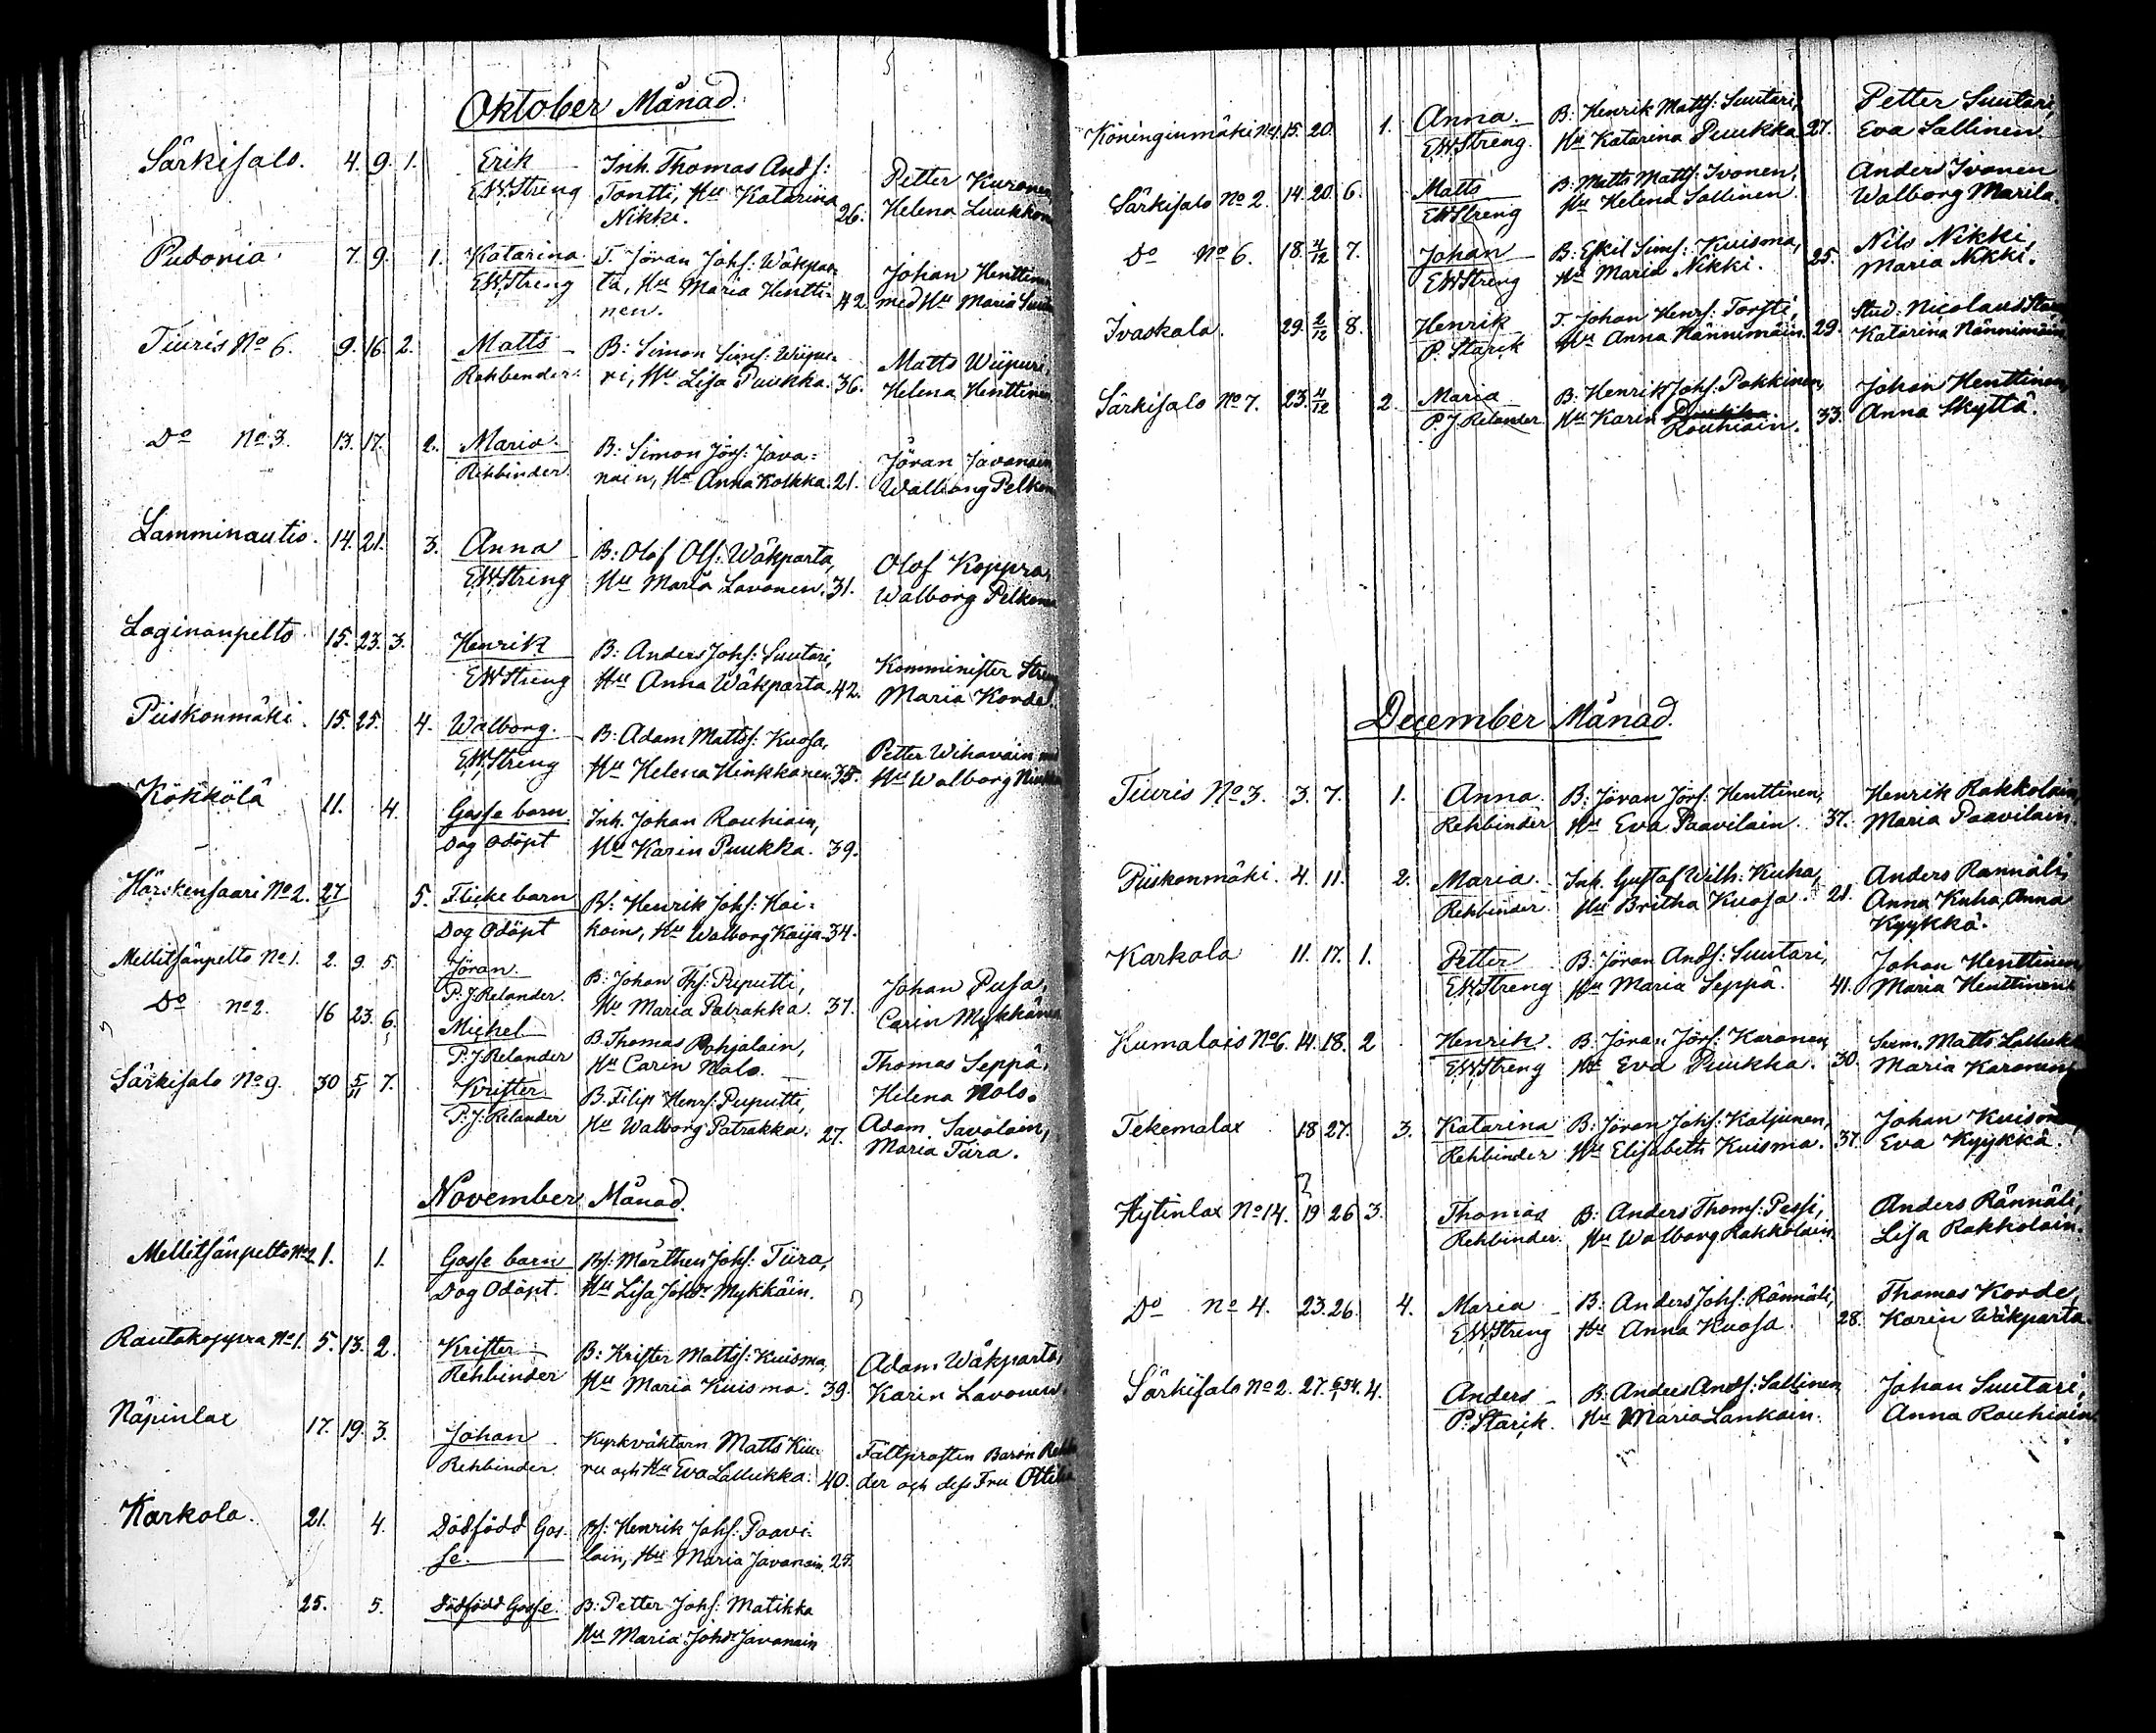 Oktober Månad.
Särkisalo. 4. 9. 1. Erik Inh. Thomas Ands: Petter Kuronen,
E.W.Streng Tontti, Hu Katariina 26. Helena Luukkon
Nikki.
Pudoria. 7. 9. 1. Katarina T. Jöran Johs: Wäkpar Johan Henttinen
E.W.Streng ta, Hu Maria Hentti= 42. med Hu Maria
nen.
Tiuris No 6. 9. 16. 2. Matts B: Simon Sims: Wiipu= Matts Wiipuri,
Rehbender. ri, Hu Lisa Puukka. 36. Helena Henttinen
Do No 3. 13. 17. 2. Maria B: Simon Jörs: Java= Jöran Javanain
Rehbinder nain, Hu Anna Kolkka. 21. Walborg Pelkon
Lamminautio. 14. 21. 3. Anna B: Olof Ols: Wäkparta, Olof Koppra,
E.W.Streng Hu Maria Lavonen. 31. Walborg Pelkone
Loginanpelto 15. 23. 3. Henrik B: Anders Johs: Suutari, Komminister Streng
E.W.Streng Hu Anna Wäkparta. 42. Maria Korde.
Piiskonmäki. 15. 25. 4. Walborg. B: Adam Mattss: Kuosa, Petter Wihavain med
E.W.Streng Hu Helena Hinkkanen. 35. Hu Walborg
Kökkölä 11. 4. Gosse barn Inh. Johan Rouhiain,
Dog Odöpt Hu Karin Puukka. 39.
Härskensaari No 2. 27 5. Flicke barn Bs: Henrik Johs: Hai=
Dog Odöpt kain, Hu Walborg Kaija 34.
Mellitsänpelto No 1. 2. 9. 5. Jöran. B: Johan Ths: Puputti, Johan Pusa,
P:J:Relander. Hu Maria Patrakka. 37. Carin Mykkänen
Do No 2. 16 23. 6. Michel B. Thomas Pohjalain, Thomas Seppä,
P:J:Relander Hu Carin Nalo. Helena Nolo.
Särkisalo No 9. 30 5/11 7. Krister B. Filip Henrs: Puputti, Adam Savolain,
P:J:Relander Hu Walborg Patrakka. 27. Maria Tiira.
November Månad.
Mellitsänpelto No 2 1. 1. Gosse barn Bs: Mårthen Johs: Tiira,
Dog Odöpt. Hu Lisa Johdr Mykkäin.
Rautakoppra No 1. 5. 13. 2. Krister B: Krister Mattss: Kuisma, Adam Wäkparta,
Rehbinder Hu Maria Kuisma. 39. Karin Lavonen.
Näpinlax 17. 19. 3. Johan Kyrkväktarn Matts Kiu= Fältprosten Baron Rehb
Rehbinder. ru och Hu Eva Lallukka. 40. der och dess Fru Ottilia
Karkola. 21. 4. Dödfödd Gos= Bs: Henrik Johs: Paavi=
se. lain, Hu Maria Javanain. 25.
25. 5. Dödfödd Gosse. B: Petter Johs: Matikka
Hu Maria Johdr Javanain
Köninginmäki No 4. 15. 20. 1. Anna. B: Henrik Matts: Suutari, Petter Suutari,
E.W.Streng. Hu Katarina Puukka 27. Eva Sallinen.
Särkisalo No 2. 14. 20. 6. Matts B: Matts Matts: Ivonen. Anders Ivonen
E.W.Streng Hu Helena Sallinen. Walborg Marila.
Do No 6. 18. 4/12 7. Johan B: Eskil Sims: Kuisma, Nils Nikki,
E.W.Streng Hu Maria Nikki. 25. Maria Nikki.
Ivaskala. 29. 2/12 8. Henrik T. Johan Henrs: Torsti, Stud. Nicolaus
P. Starik Hu Anna Nännimäin. 29. Katarina Nännimäin
Särkisalo No 7. 23. 4/12 2. Maria B: Henrik Johs: Pokkinen, Johan Henttinen,
P.J.Relander Hu Karin Rouhiain. 33. Anna Skyttä.
December Månad.
Tiuris No 3. 3. 7. 1. Anna. B: Jöran Jörs: Henttinen, Henrik Rakkolain,
Rehbinder Hu Eva Paavilain. 37. Maria Paavilain.
Piiskonmäki. 4. 11. 2. Maria. Inh. Gustaf Wilh: Kuha, Anders Rannäli,
Rehbinder. Hu Britha Kuosa. 21. Anna Kuha, Anna
Kyykkä.
Karkola 11. 17. 1. Petter B: Jöran Ands: Suutari, Johan Henttinen,
E.W.Streng Hu Maria Seppä. 41. Maria Henttinen.
Kumalais No 6. 14. 18. 2 Henrik. B: Jöran Jörs: Karonen, Sum. Matts Lallukka
E.W.Streng Hu Eva Puukka. 30. Maria Karonen
Tekemalax 18 27. 3. Katarina B: Jöran Johs: Kaljunen, Johan Kuisma,
Rehbinder Hu Elisabeth Kuisma. 37. Eva Kyykkä.
Hytinlax No 14. 19 26 3. Thomas B: Anders Thoms: Pessi, Anders Rännäli,
Rehbinder. Hu Walborg Rakkolain. Lisa Rakkolain.
Do No 4. 23. 26. 4. Maria B: Anders Johs: Rännäli, Thomas Korde,
E.W.Streng Hu Anna Kuosa. 28. Karin Wäkparta.
Särkisalo No 2. 27. 4. Anders B: Anders Ands: Sallinen, Johan Suutari,
P. Starik. Hu Maria Lankain. Anna Rouhiain.